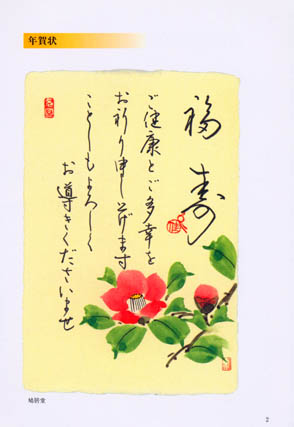 年賀状
福寿
ご健康とご多幸を
お祈り申し上げます
ことしもよろしく
お導きくださいませ
鳩居堂
2